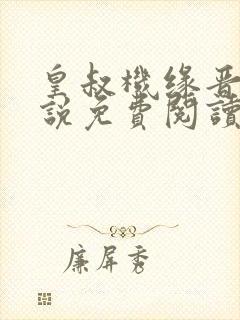 皇叔機緣晋
說免費閱讀
廉屏秀